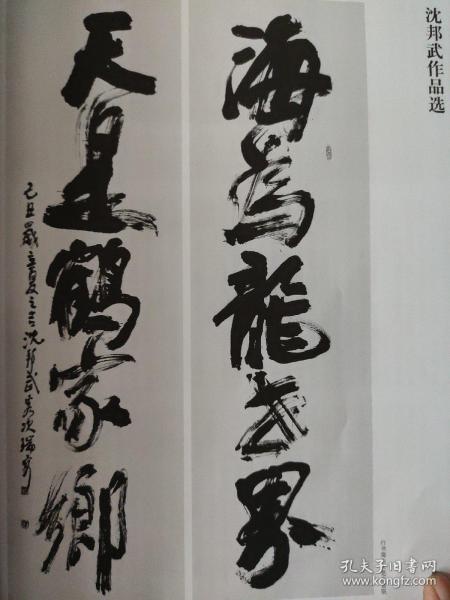 沈邦武作品选
海为龙世界
天是鹤家乡
己丑岁立夏之吉沈邦武客次瑞安
孔夫子旧书网
www.kongfz.com